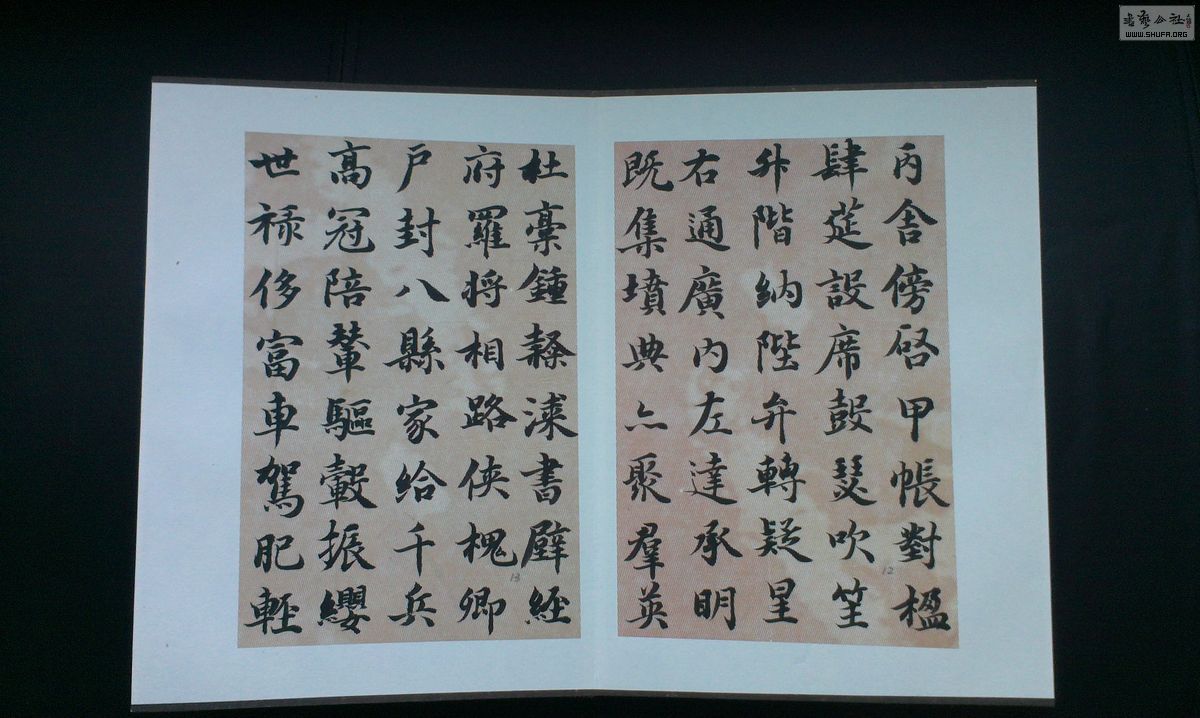 丙舍傍启甲帳對楹
肆莚設席鼓瑟吹笙
升階納陛弁轉疑星
右通廣内左達承明
既集墳典亦聚羣英
12
杜稾鍾隸漆書壁経
府羅将相路俠槐卿
戸封八縣家給千兵
高冠陪輦驅轂振纓
世禄侈富車駕肥輕
13
書藝公社
WWW.SHUFA.ORG